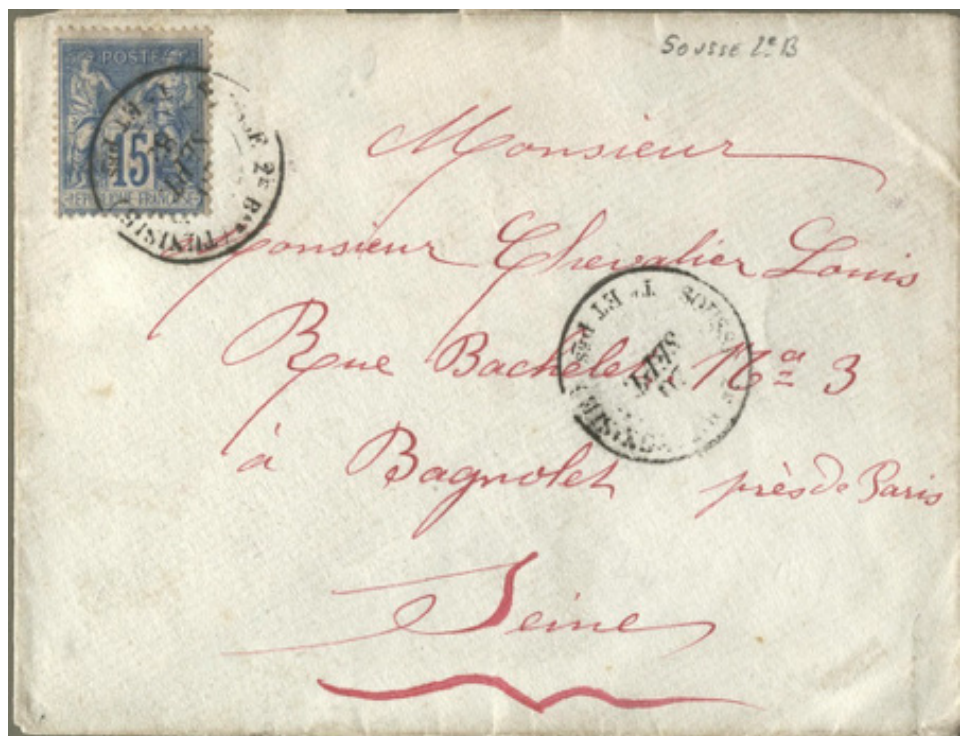 SOUSSE 2e B
POSTE
15
REPUBLIQUE FRANÇAISE
2E Bau (TUNISIE)
T. ET P
Monsieur
Monsieur Chevalier Louis
Rue Bachelet No 3
à Bagnolet près de Paris
Seine
T. ET P SOUSSE
SEPT